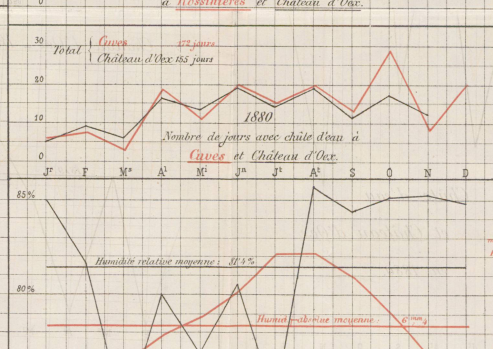 0
à Rossinières et Château d'Oex.
30
Total { Caves 172 jours
Château d'Oex 155 jours
20
1880
10
Nombre de jours avec chûte d'eau à
Caves et Château d'Oex.
0
Jr F Ms Al Mi Jn Jt At S O N D
85%
Humidité relative moyenne: 81'4%
80%
moyenne: